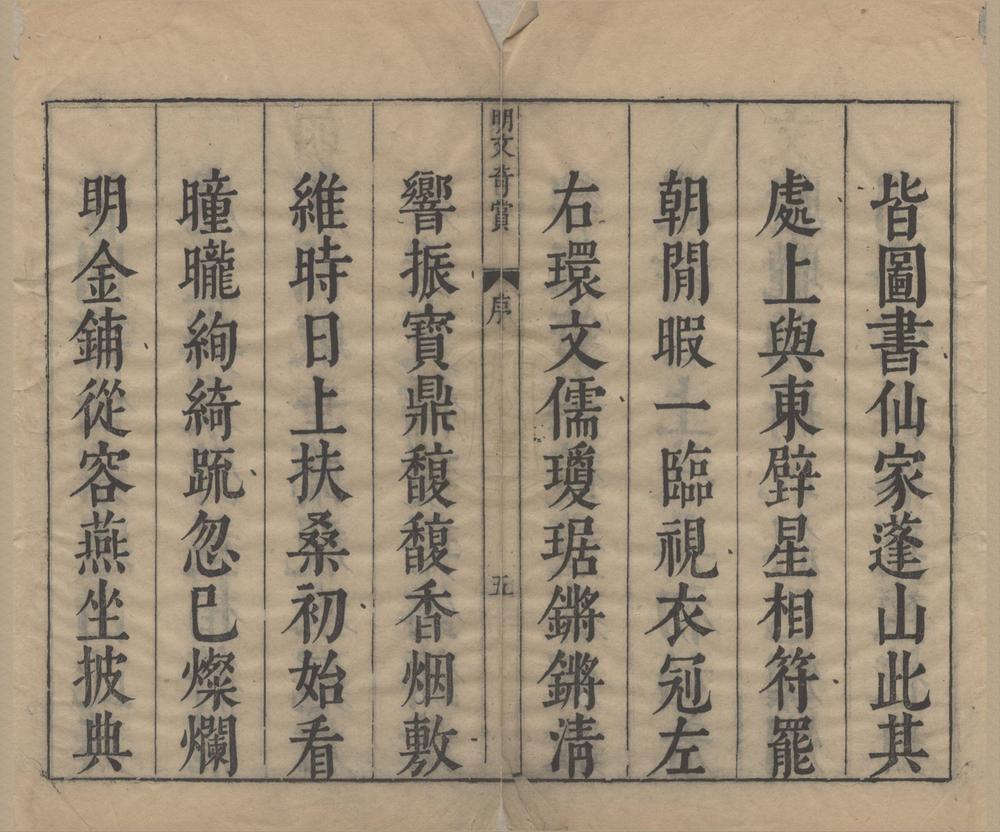 皆圖書仙家蓬山此其
處上與東壁星相符罷
朝閒暇一臨視衣冠左
右環文儒瓊琚鏘鏘清
明文奇賞
序
五
響振寶鼎馥馥香烟敷
維時日上扶桑初始看
曈曨絢綺䟽忽已燦爛
明金鋪從容燕坐披典